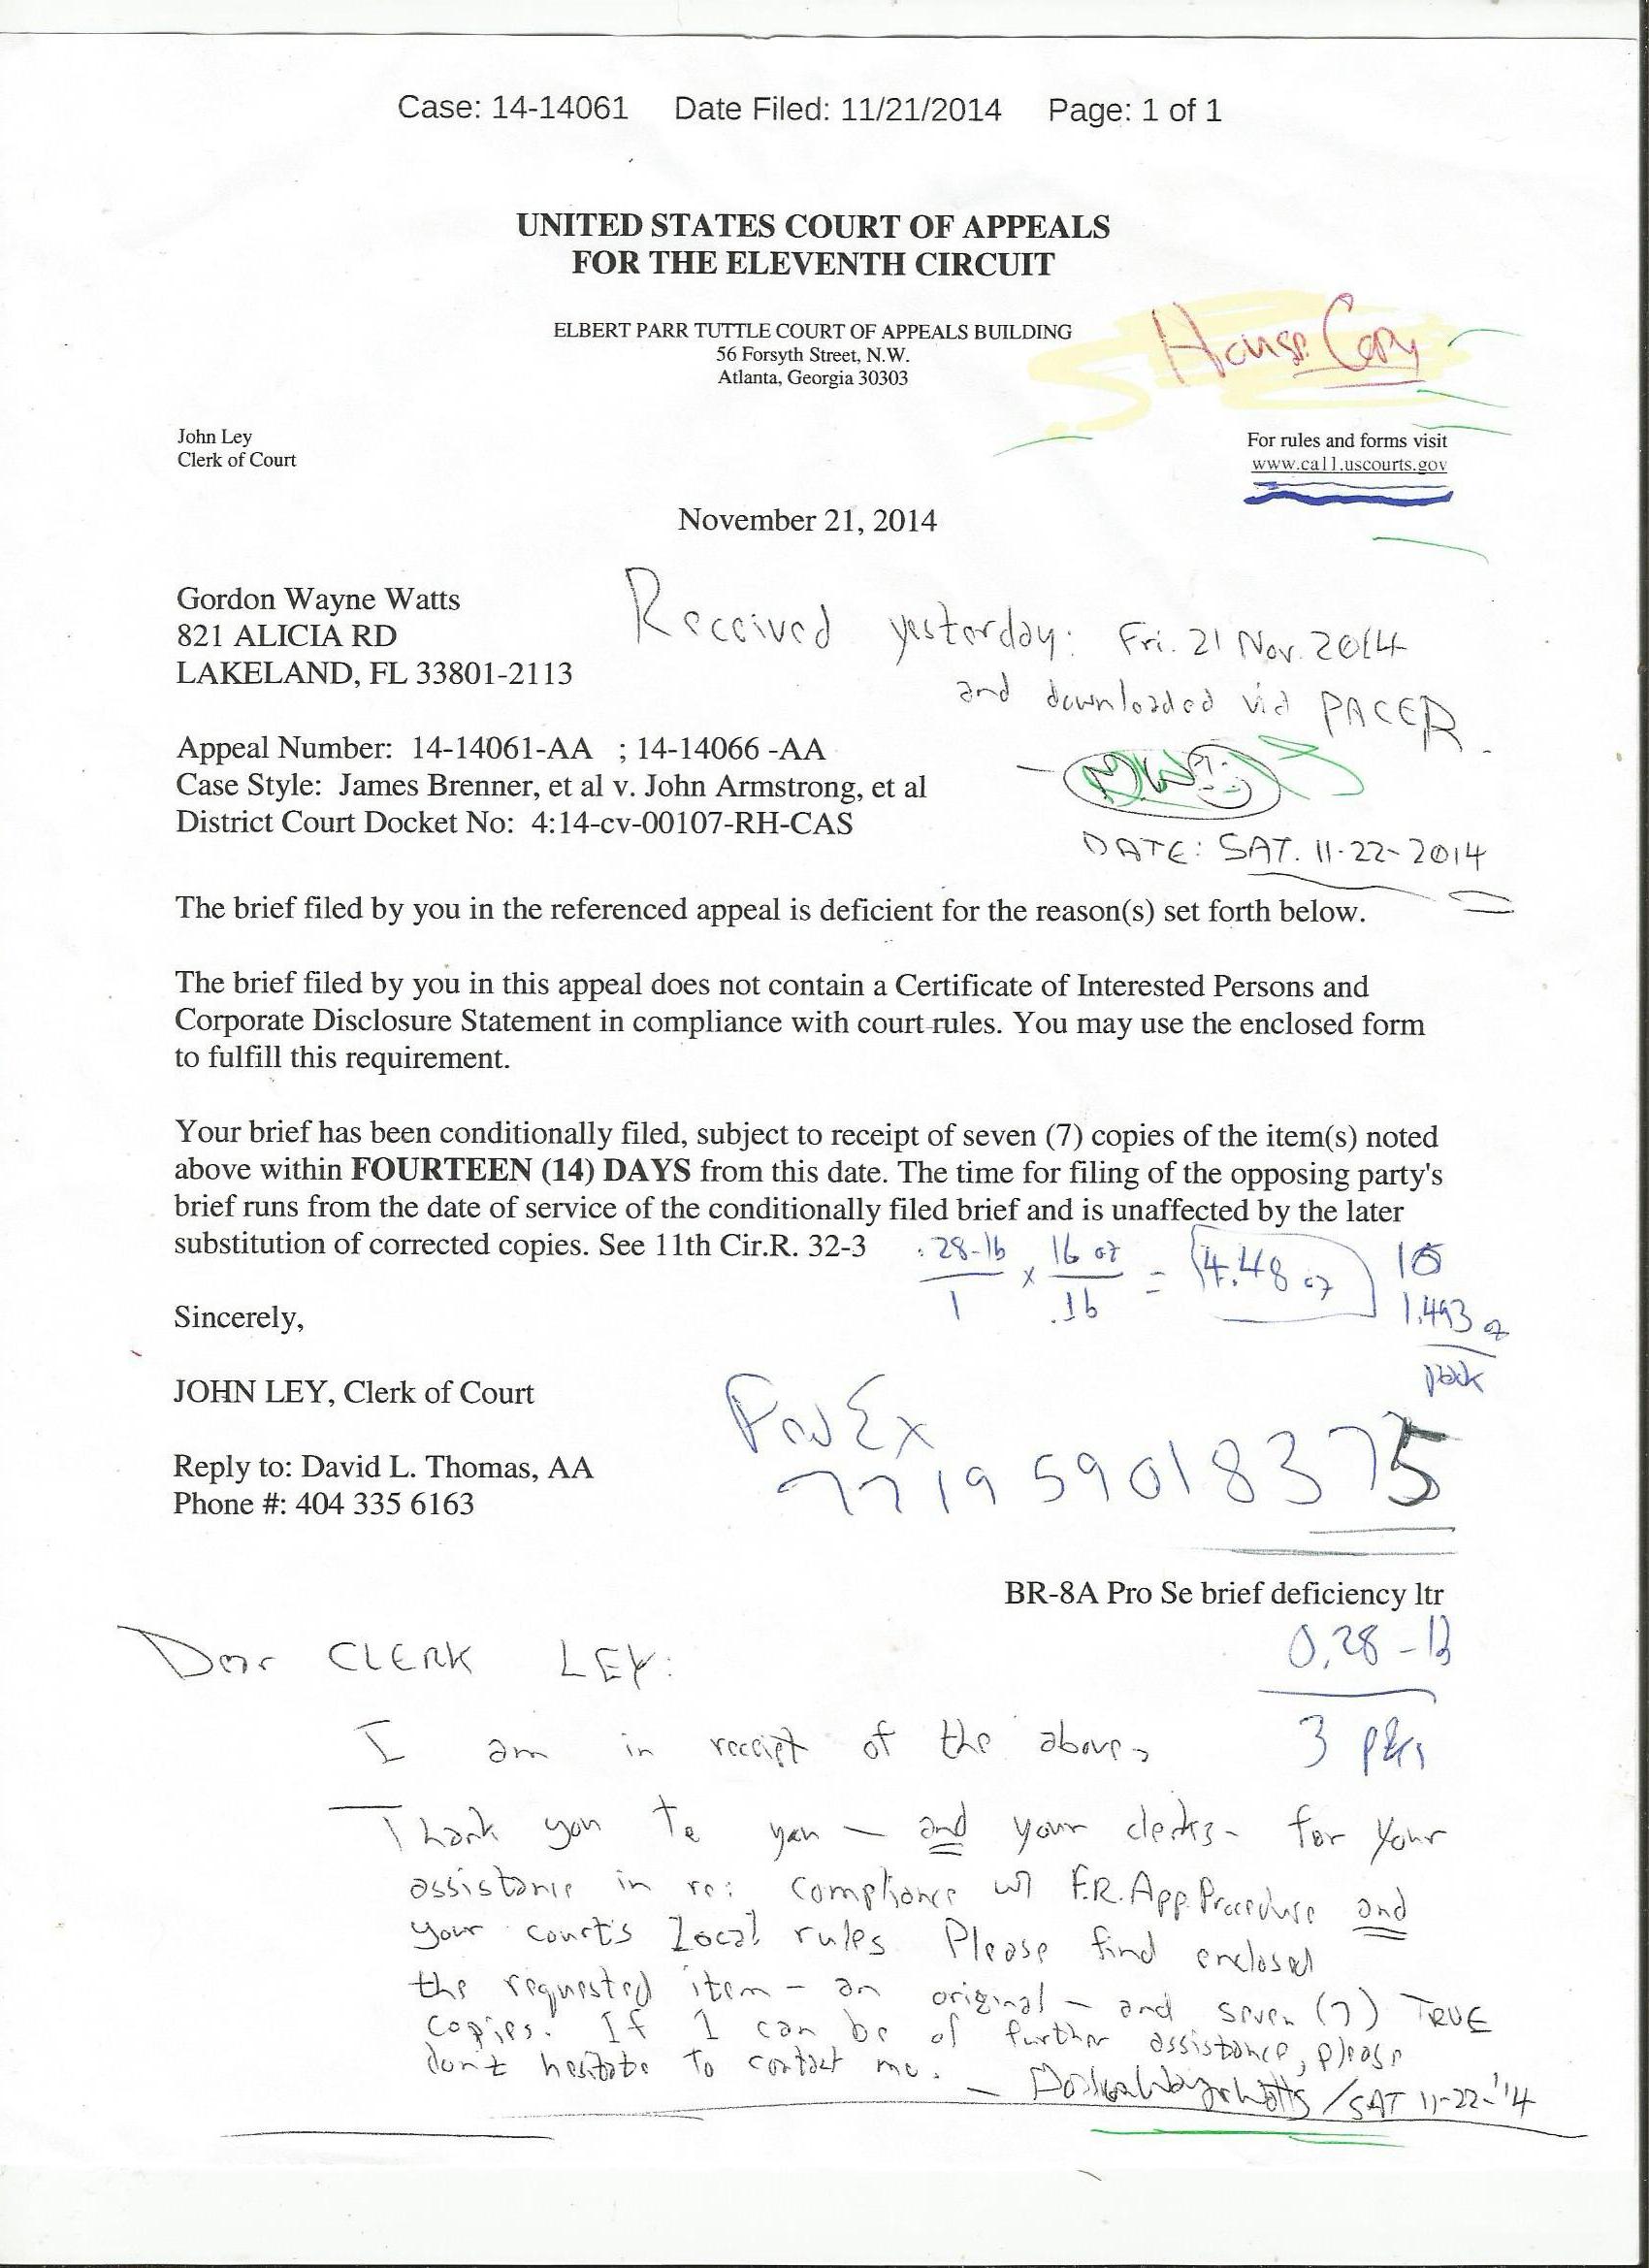 Case: 14-14061 Date Filed: 11/21/2014 Page: 1 of 1
UNITED STATES COURT OF APPEALS
FOR THE ELEVENTH CIRCUIT
ELBERT PARR TUTTLE COURT OF APPEALS BUILDING
56 Forsyth Street, N.W.
Atlanta, Georgia 30303
House Copy
John Ley
Clerk of Court
For rules and forms visit
www.ca11.uscourts.gov
November 21, 2014
Gordon Wayne Watts
821 ALICIA RD
LAKELAND, FL 33801-2113
Received yesterday: Fri. 21 Nov. 2014
and downloaded via PACER.
Appeal Number: 14-14061-AA ; 14-14066 -AA
Case Style: James Brenner, et al v. John Armstrong, et al
District Court Docket No: 4:14-cv-00107-RH-CAS
DATE: SAT. 11-22-2014
The brief filed by you in the referenced appeal is deficient for the reason(s) set forth below.
The brief filed by you in this appeal does not contain a Certificate of Interested Persons and
Corporate Disclosure Statement in compliance with court rules. You may use the enclosed form
to fulfill this requirement.
Your brief has been conditionally filed, subject to receipt of seven (7) copies of the item(s) noted
above within FOURTEEN (14) DAYS from this date. The time for filing of the opposing party's
brief runs from the date of service of the conditionally filed brief and is unaffected by the later
substitution of corrected copies. See 11th Cir.R. 32-3
.28-lb/1 x 16 oz/lb = 4.48 oz
1.493 oz
pack
Sincerely,
JOHN LEY, Clerk of Court
FedEx
7719 5901 8375
Reply to: David L. Thomas, AA
Phone #: 404 335 6163
BR-8A Pro Se brief deficiency ltr
0.28-lb
3 pks
Dear CLERK LEY:
I am in receipt of the above.
Thank you to you — and your clerks - for your
assistance in re: compliance w/ F.R.App.Procedure and
your court's Local rules. Please find enclosed
the requested item - an original - and seven (7) TRUE
copies. If I can be of further assistance, please
don't hesitate to contact me.
— Gordon Wayne Watts / SAT 11-22-'14